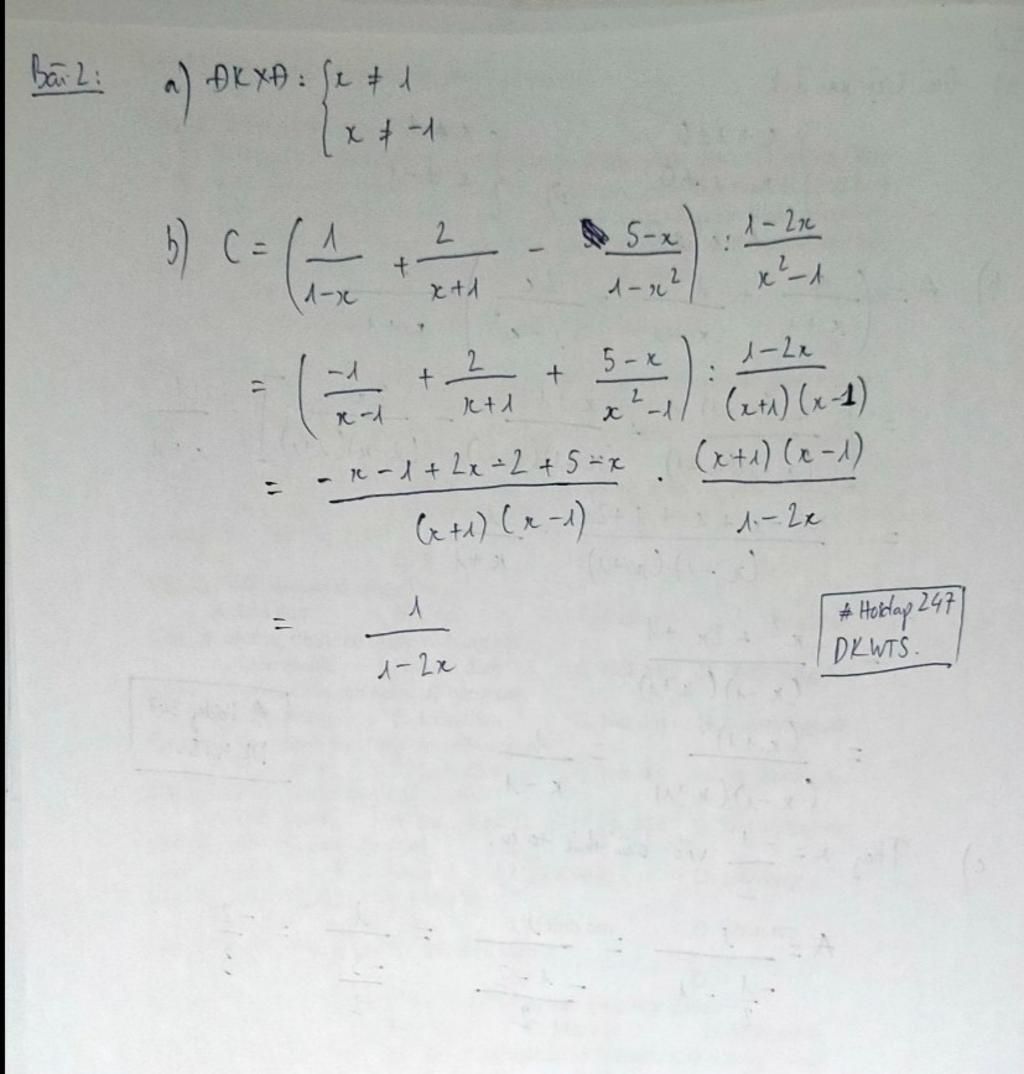 Bài 2: a) ĐKXĐ: { x ≠ 1
x ≠ -1
b) C = ( 1/(1-x) + 2/(x+1) - (5-x)/(1-x²) ) : (1-2x)/(x²-1)
= ( -1/(x-1) + 2/(x+1) + (5-x)/(x²-1) ) : (1-2x)/((x+1)(x-1))
= (-x-1+2x-2+5-x)/((x+1)(x-1)) . ((x+1)(x-1))/(1-2x)
= 1/(1-2x)
# Hoidap 247
DKWTS.